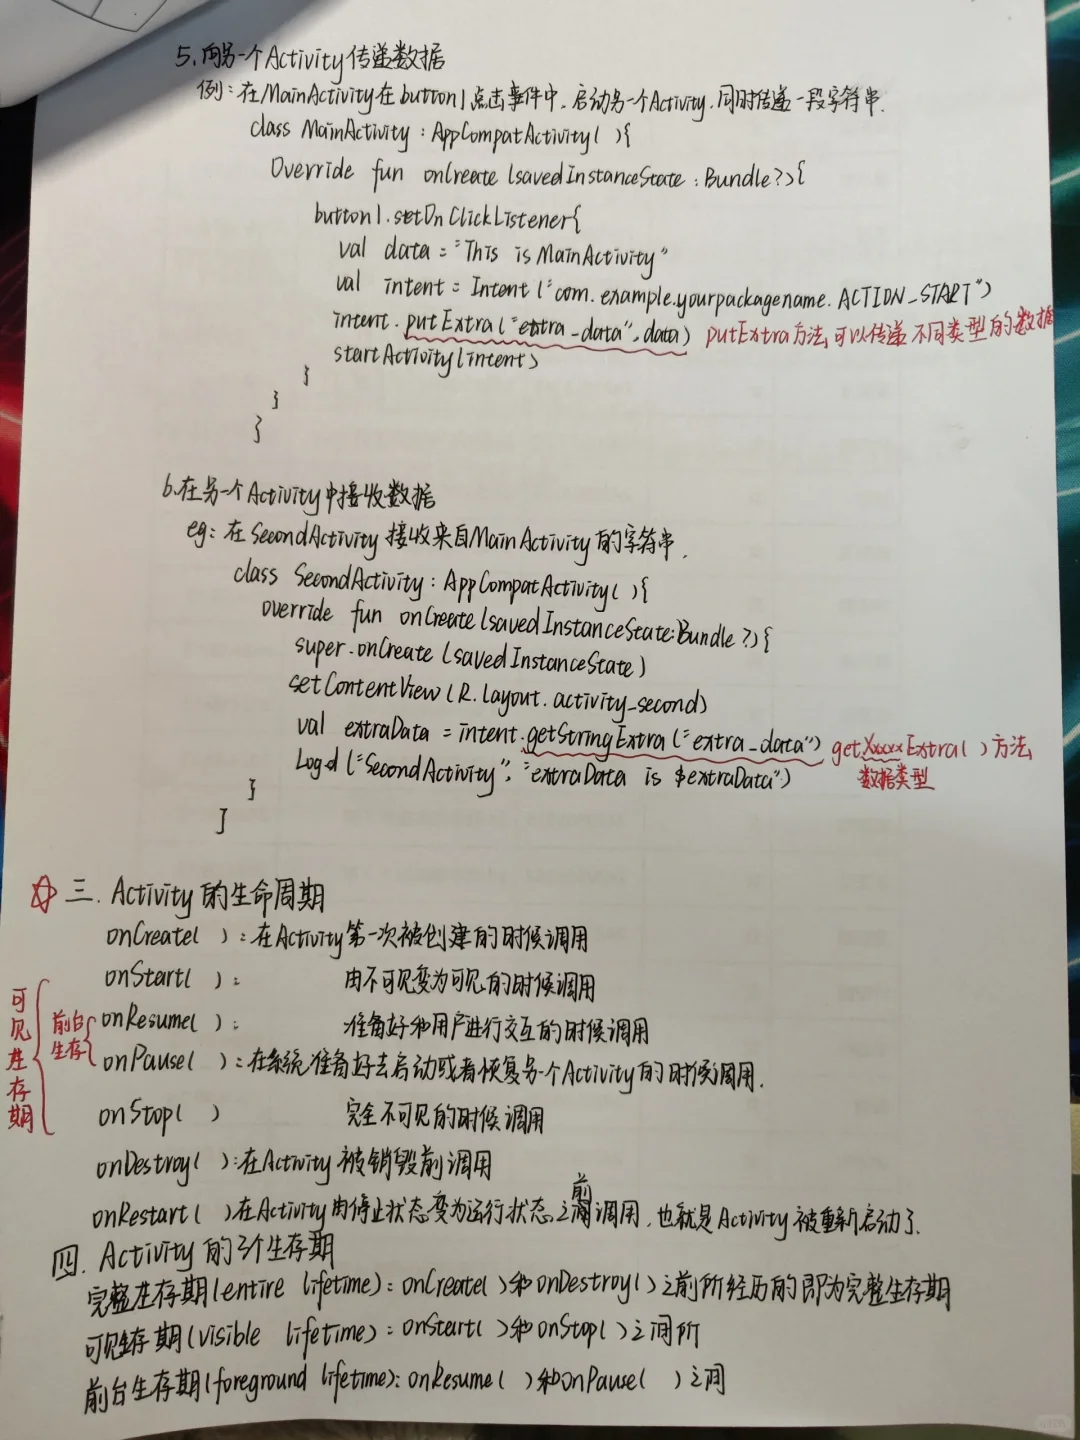 5.向另一个Activity传递数据
例：在MainActivity在button1点击事件中，启动另一个Activity，同时传递一段字符串.
class MainActivity : AppCompatActivity( ){
Override fun onCreate (savedInstanceState : Bundle?){
button1.setOnClickListener{
val data = "This is MainActivity"
val intent = Intent ("com.example.yourpackagename.ACTION_START")
intent.putExtra("extra_data",data) putExtra方法可以传递不同类型的数据
startActivity(intent)
}
}
}
6.在另一个Activity中接收数据
eg：在SecondActivity接收来自MainActivity的字符串.
class SecondActivity : AppCompatActivity( ){
override fun onCreate (savedInstanceState:Bundle?){
super.onCreate (savedInstanceState)
setContentView (R.layout.activity_second)
val extraData = intent.getStringExtra("extra_data") getXxxxxExtra( )方法
Log.d ("SecondActivity", "extraData is $extraData") 数据类型
}
}
☆三. Activity的生命周期
onCreate( )：在Activity第一次被创建的时候调用
onStart( )： 由不可见变为可见的时候调用
onResume( )： 准备好和用户进行交互的时候调用
onPause( )：在系统准备好去启动或者恢复另一个Activity的时候调用.
onStop( ) 完全不可见的时候调用
可见生存期
前台生存
onDestroy( )：在Activity被销毁前调用
onRestart( )在Activity由停止状态变为运行状态之前调用，也就是Activity被重新启动了.
四. Activity的3个生存期
完整生存期(entire lifetime)：onCreate( )和onDestroy( )之前所经历的即为完整生存期
可见生存期(visible lifetime)：onStart( )和onStop( )之间所
前台生存期(foreground lifetime)：onResume( )和onPause( )之间